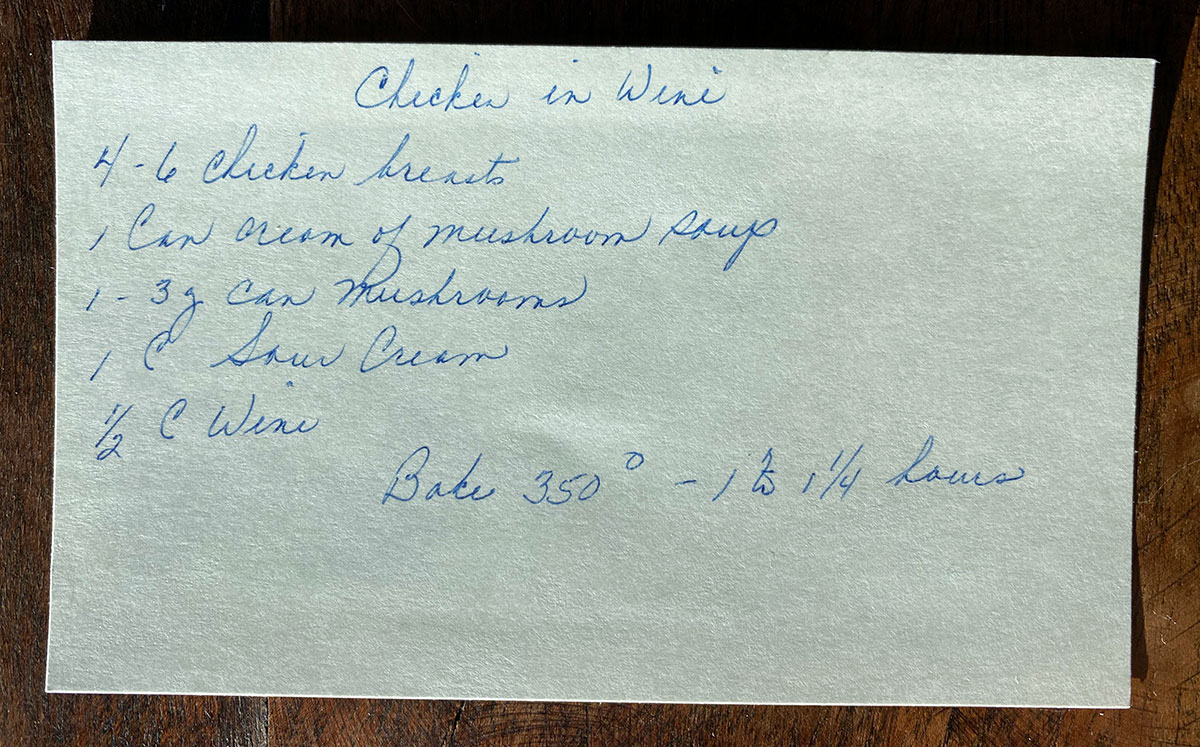 Chicken in Wine
4-6 chicken breasts
1 Can cream of mushroom soup
1 - 3 can mushrooms
1 C Sour Cream
1/2 C Wine
Bake 350° - 1 to 1 1/4 hours